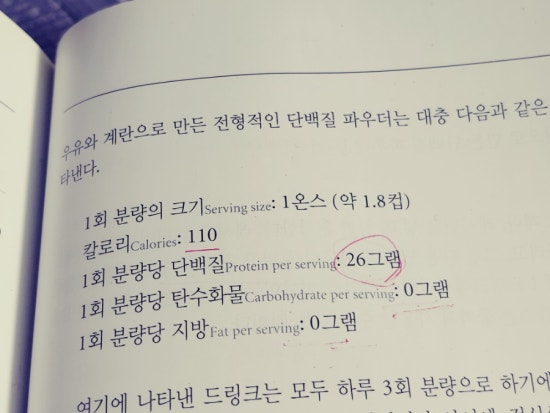 우유와 계란으로 만든 전형적인 단백질 파우더는 대충 다음과 같은
타낸다.
1회 분량의 크기Serving size: 1온스 (약 1.8컵)
칼로리Calories: 110
1회 분량당 단백질Protein per serving: 26그램
1회 분량당 탄수화물Carbohydrate per serving: 0그램
1회 분량당 지방Fat per serving: 0그램
여기에 나타낸 드링크는 모두 하루 3회 분량으로 하기에